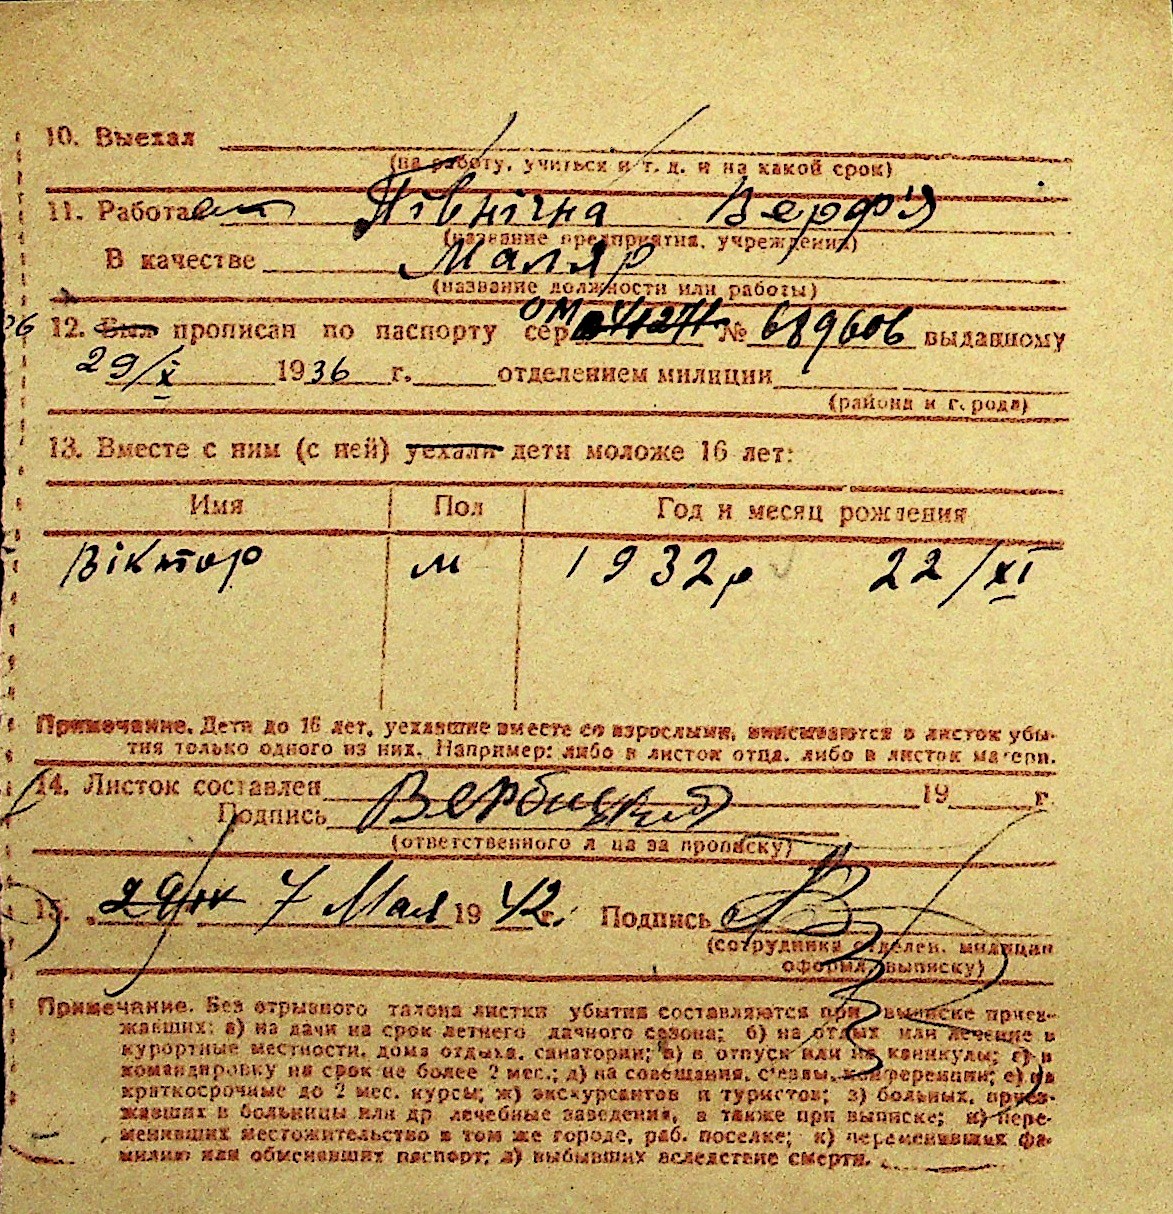 10. Выехал
(на работу, учиться и т. д. и на какой срок)
11. Работает Північна Верф'я
(название предприятия, учреждения)
В качестве Маляр
(название должности или работы)
ОМ
12. Был прописан по паспорту сер. № 689606 выданному
29/X 1936 г. отделением милиции
(района и города)
13. Вместе с ним (с ней) уехали дети моложе 16 лет:
Имя Пол Год и месяц рождения
Віктор м 1932р 22/XI
Примечание. Дети до 16 лет, уехавшие вместе со взрослыми, вписываются в листок убы-
тия только одного из них. Например: либо в листок отца, либо в листок матери.
14. Листок составлен 19 г.
Подпись Вербицкий
(ответственного лица за прописку)
15. 7 Мая 1942 г. Подпись
(сотрудника отделен. милиции
оформл. выписку)
Примечание. Без отрывного талона листки убытия составляются при выписке приез-
жавших: а) на дачи на срок летнего дачного сезона; б) на отдых или лечение в
курортные местности, дома отдыха, санатории; в) в отпуск или на каникулы; г) в
командировку на срок не более 2 мес.; д) на совещания, съезды, конференции; е) на
краткосрочные до 2 мес. курсы; ж) экскурсантов и туристов; з) больных, приез-
жавших в больницы или др. лечебные заведения, а также при выписке; и) пере-
менивших местожительство в том же городе, раб. поселке; к) переменивших фа-
милию или обменявших паспорт; л) выбывших вследствие смерти.